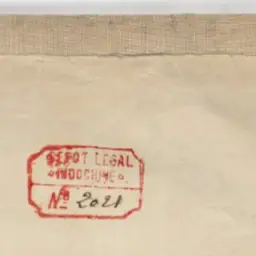 DEPOT LEGAL
INDOCHINE
Nº 2021